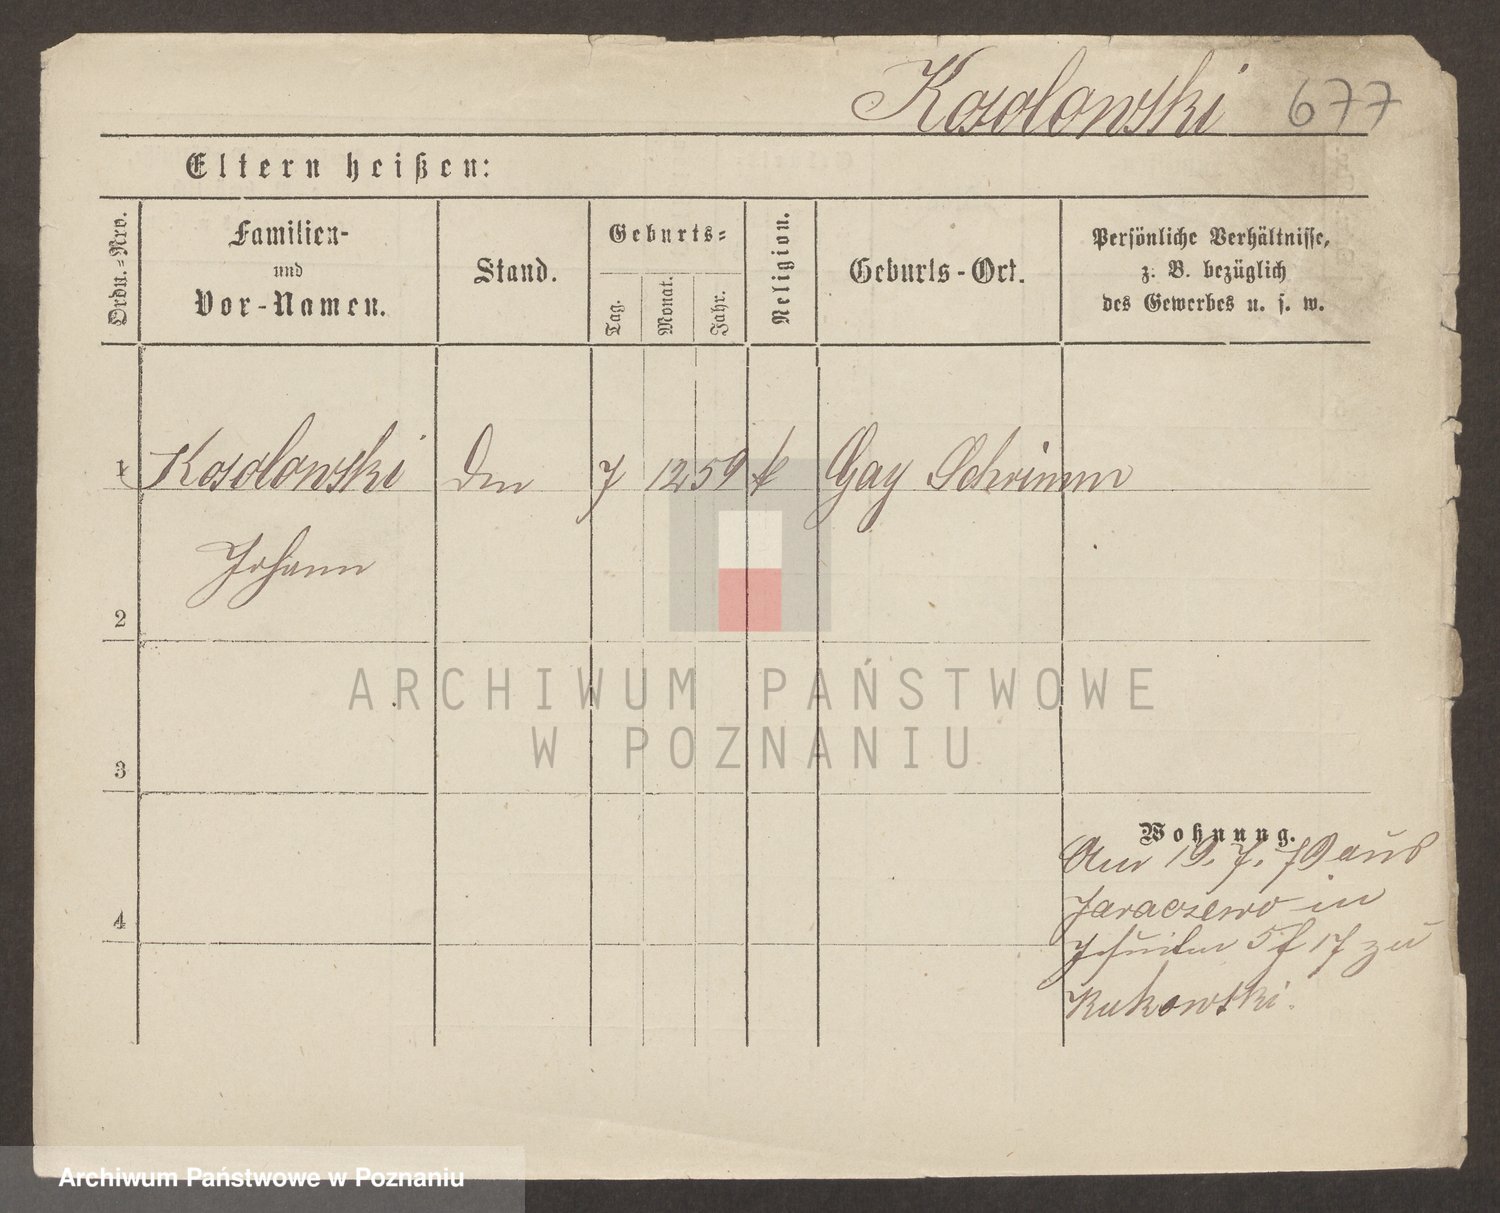 Kosolowski 677
Eltern heißen:
Ordn.-Nro.
Familien-
und
Vor-Namen.
Stand.
Geburts-
Tag.
Monat.
Jahr.
Religion.
Geburts-Ort.
Persönliche Verhältnisse,
z. B. bezüglich
des Gewerbes u. s. w.
1 Kosolowski 7 12 59 k Gay Schrimm
Johann
2
3
4
Wohnung.
Am 19. 7. 79 aus
Jaraczewo in
17 zu
Kukowski.
ARCHIWUM PAŃSTWOWE
W POZNANIU
Archiwum Państwowe w Poznaniu